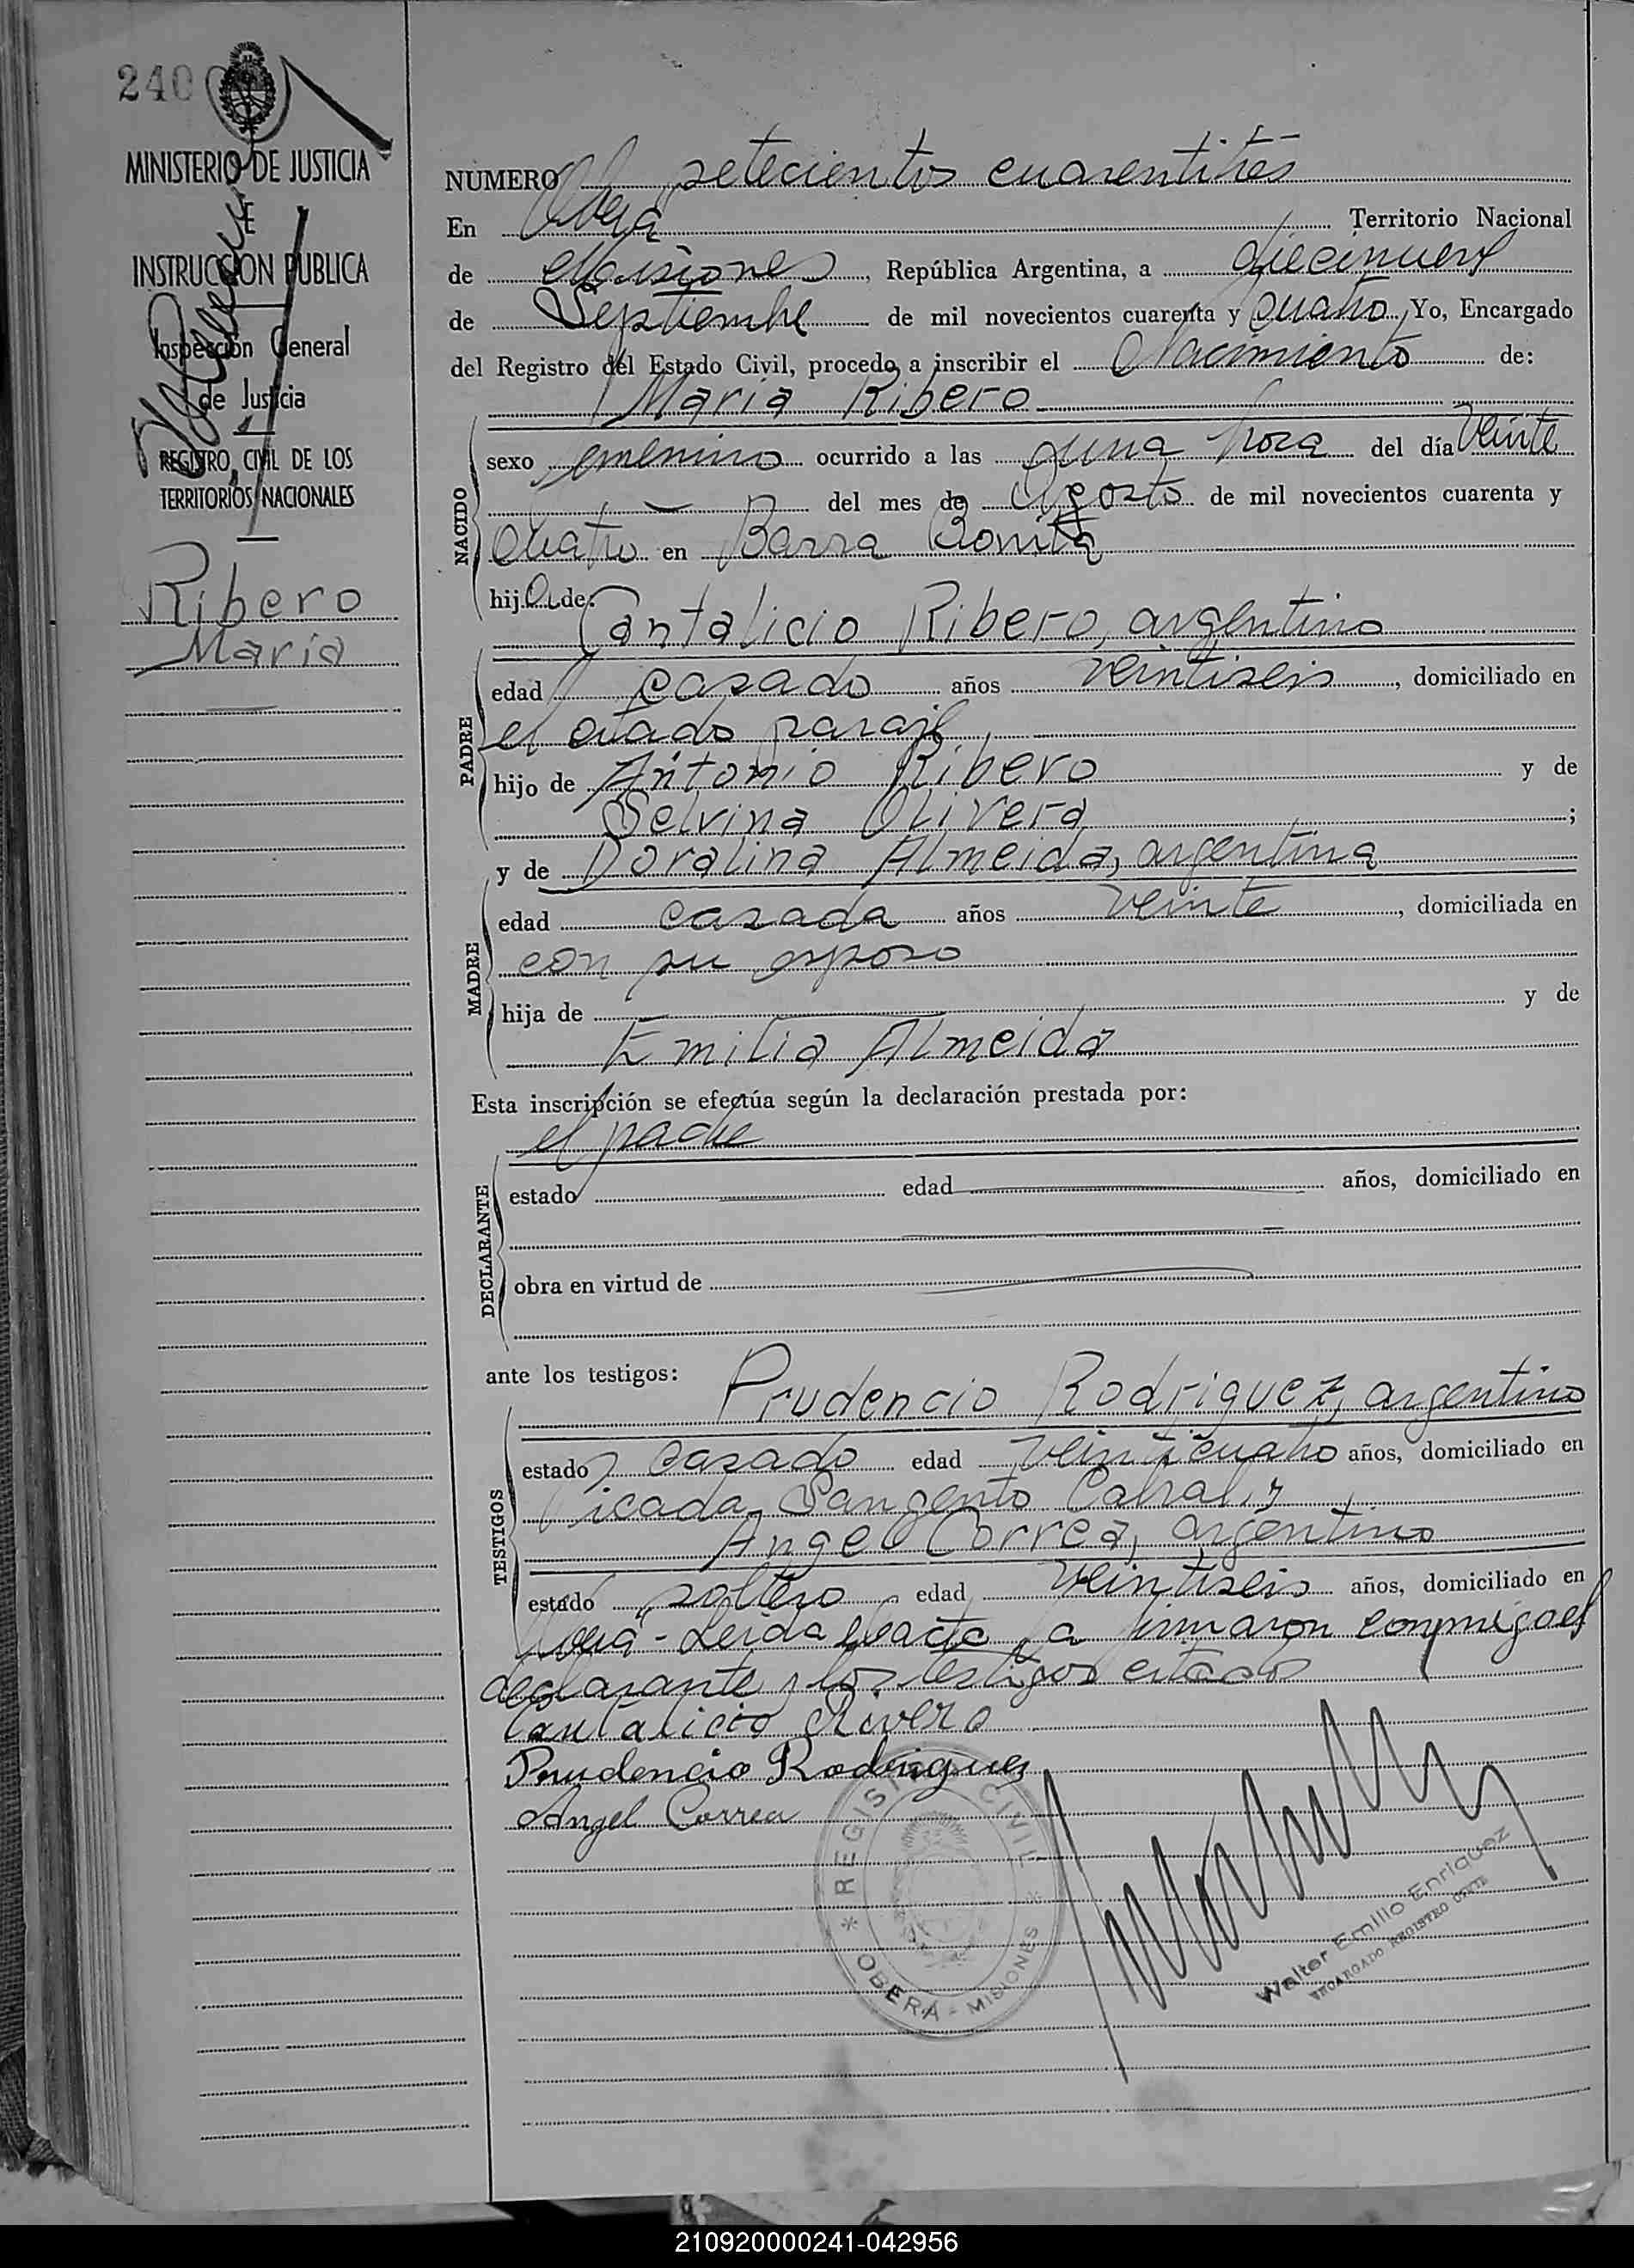 240
MINISTERIO DE JUSTICIA
E
INSTRUCCION PUBLICA
Inspección General
de Justicia
REGISTRO CIVIL DE LOS
TERRITORIOS NACIONALES
Ribero
Maria
NUMERO setecientos cuarentitrés
En Oberá Territorio Nacional
de Misiones, República Argentina, a diecinueve
de Septiembre de mil novecientos cuarenta y cuatro, Yo, Encargado
del Registro del Estado Civil, procedo a inscribir el Nacimiento de:
Maria Ribero
NACIDO
sexo femenino ocurrido a las una hora del día veinte
del mes de Agosto de mil novecientos cuarenta y
cuatro en Barra Bonita
hija de:
Cantalicio Ribero, argentino
PADRE
edad casado años veintiseis, domiciliado en
el citado paraje
hijo de Antonio Ribero y de
Selvina Olivera;
y de Doralina Almeida, argentina
MADRE
edad casada años veinte, domiciliada en
con su esposo
hija de y de
Emilia Almeida
Esta inscripción se efectúa según la declaración prestada por:
el padre
DECLARANTE
estado edad años, domiciliado en
obra en virtud de
ante los testigos:
Prudencio Rodriguez, argentino
TESTIGOS
estado casado edad veinticuatro años, domiciliado en
Picada Sargento Cabral, y
Angel Correa, argentino
estado soltero edad veintiseis años, domiciliado en
Oberá - Leida el acta, la firmaron conmigo el
declarante y los testigos citados
Cantalicio Rivero
Prudencio Rodriguez
Angel Correa
* REGISTRO CIVIL *
OBERÁ - MISIONES
Walter Emilio Enriquez
ENCARGADO REGISTRO CIVIL
210920000241-042956